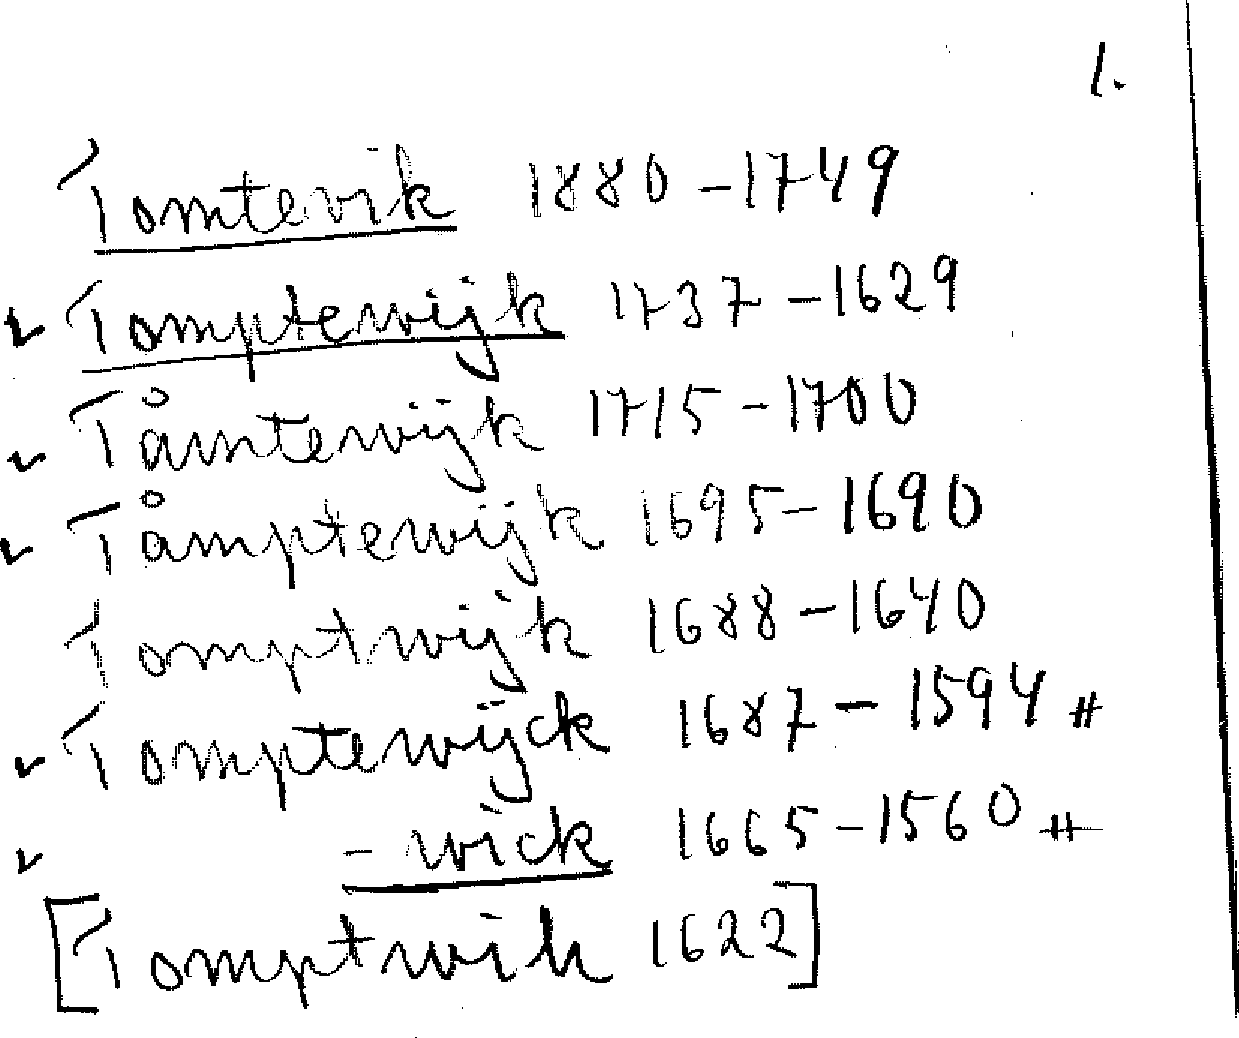 1.
Tomtevik 1880-1749
✓ Tomptewijk 1737-1629
✓ Tåmtewijk 1715-1700
✓ Tåmptewijk 1695-1690
Tomptwijk 1688-1640
✓ Tomptewijck 1687-1594 #
✓ -wick 1665-1560 #
[Tomptwik 1622]